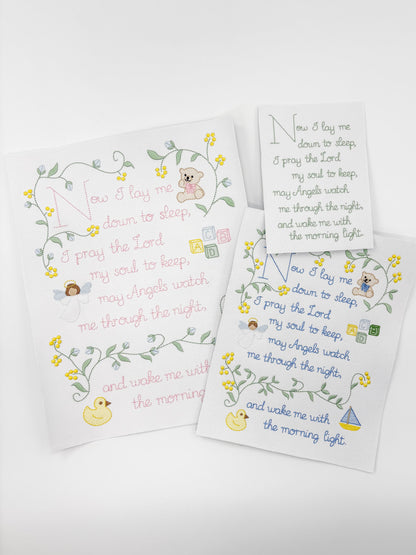 Now I lay me
down to sleep,
I pray the Lord
my soul to keep,
may Angels watch
me through the night,
and wake me with
the morning
Now I lay me
down to sleep,
I pray the Lord
my soul to keep,
may Angels watch
me through the night,
and wake me with
the morning light.
Now I lay me
down to sleep,
I pray the Lord
my soul to keep,
may Angels watch
me through the night,
and wake me with
the morning light.